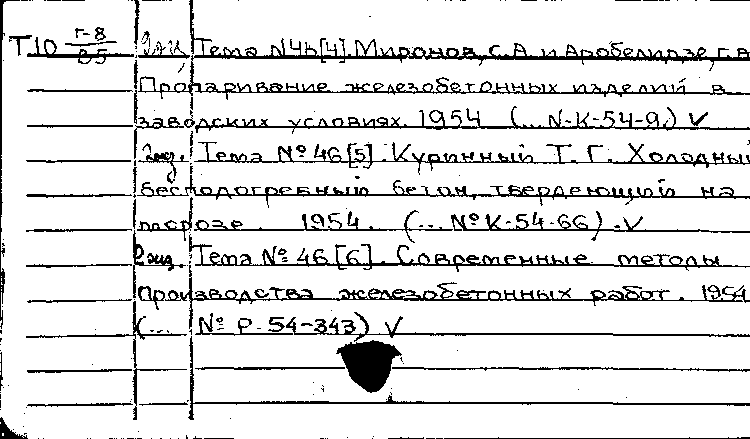 Т10 Г-8/85 2экз. Тема №46[4]. Миронов, С.А. и Аробелидзе, Г.А.
Пропаривание железобетонных изделий в
заводских условиях. 1954 (... N-К-54-9.) V
2экз. Тема №46[5]. Куринный Т. Г. Холодный
бесподогревный бетон, твердеющий на
морозе. 1954. (... №К-54-66). V
2экз. Тема №46[6]. Современные методы
производства железобетонных работ. 1954
(... № Р-54-343) V